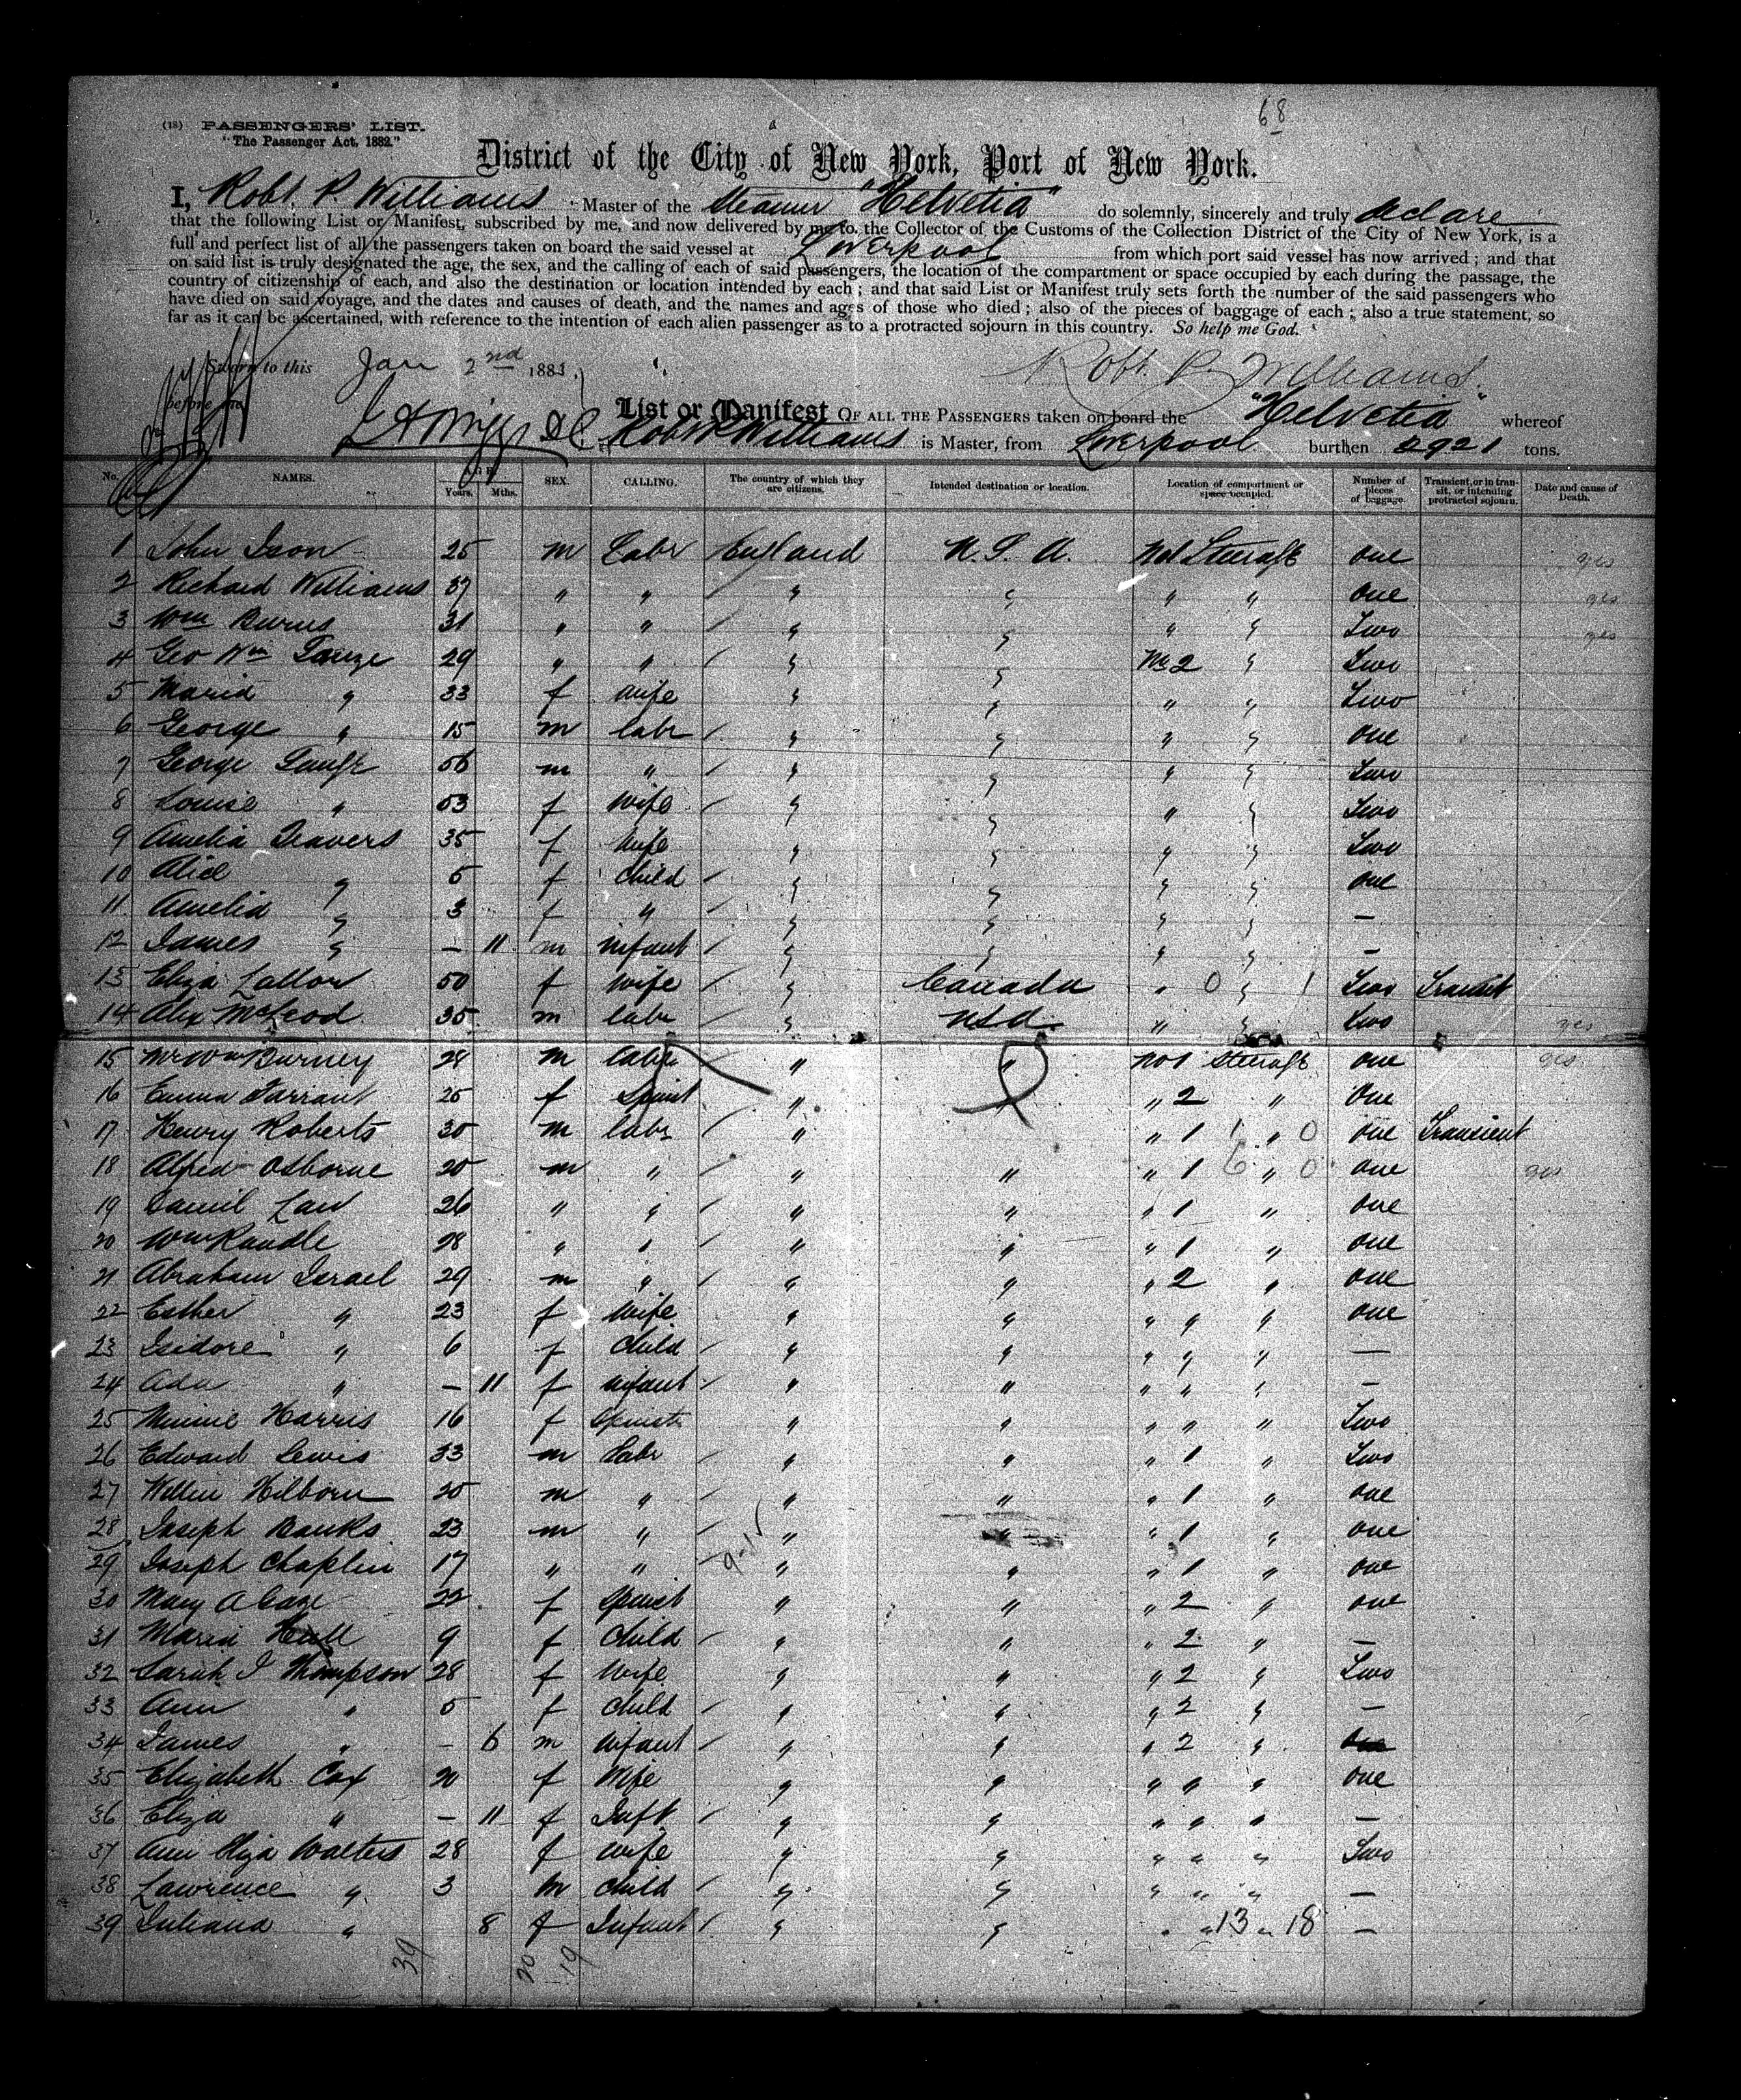 68
(18) PASSENGERS' LIST.
"The Passenger Act, 1882."
District of the City of New York, Port of New York.
I, Robt. P. Williams Master of the Steamer "Helvetia" do solemnly, sincerely and truly declare
that the following List or Manifest, subscribed by me, and now delivered by me to the Collector of the Customs of the Collection District of the City of New York, is a
full and perfect list of all the passengers taken on board the said vessel at Liverpool from which port said vessel has now arrived; and that
on said list is truly designated the age, the sex, and the calling of each of said passengers, the location of the compartment or space occupied by each during the passage, the
country of citizenship of each, and also the destination or location intended by each; and that said List or Manifest truly sets forth the number of the said passengers who
have died on said voyage, and the dates and causes of death, and the names and ages of those who died; also of the pieces of baggage of each; also a true statement, so
far as it can be ascertained, with reference to the intention of each alien passenger as to a protracted sojourn in this country. So help me God.
Sworn to this Jan 2nd 1883 Robt. P. Williams.
before me
List or Manifest OF ALL THE PASSENGERS taken on board the "Helvetia" whereof
Robt P Williams is Master, from Liverpool burthen 2921 tons.
No. NAMES. AGE. Years. Mths. SEX. CALLING. The country of which they are citizens. Intended destination or location. Location of compartment or space occupied. Number of pieces of baggage. Transient, or in transit, or intending protracted sojourn. Date and cause of Death.
1 John 25 m Labr England U.S.A. No1 Steerage one yes
2 Richard Williams 37 " " " " " " one yes
3 Wm Burns 31 " " " " " " Two yes
4 Geo Wm 29 " " " " No 2 " Two
5 Maria " 33 f wife " " " " Two
6 George " 15 m labr " " " " one
7 George 56 m " " " " " Two
8 Louise " 53 f wife " " " " Two
9 Amelia Travers 35 f wife " " " " Two
10 Alice " 5 f child " " " " one
11 Amelia " 3 f " " " " " —
12 James " — 11 m infant " " " " —
13 Eliza Lallor 50 f wife " Canada " 0 " 1 Two Transit
14 Alex McLeod 35 m labr " USA " " Two yes
15 Mr Wm Burney 28 m labr " " No 1 Steerage one yes
16 Emma Tarrant 25 f Spinst " " " 2 " One
17 Henry Roberts 30 m labr " " 1 1 " 0 one Transient
18 Alfred Osborne 20 m " " " " 1 6 " 0 one yes
19 Daniel Law 26 " " " " " 1 " one
20 Wm Randle 28 " " " " " 1 " one
21 Abraham Israel 29 m " " " " 2 " one
22 Esther " 23 f wife " " " " " one
23 Isidore " 6 f child " " " " " —
24 Ada " — 11 f infant " " " " " —
25 Minnie Harris 16 f Spinstr " " " " " Two
26 Edward Lewis 33 m Labr " " " 1 " Two
27 Hilborn 20 m " " " " 1 " one
28 Joseph Banks 23 m " " " " 1 " one
29 Joseph Chaplin 17 " " " " " 1 " one
30 Mary A Caze 22 f Spinst " " " 2 " one
31 Maria Hull 9 f child " " " 2 " —
32 Sarah J Thompson 28 f wife " " " 2 " Two
33 Ann " 5 f child " " " 2 " —
34 James " — 6 m infant " " " 2 "
35 Elizabeth Cox 20 f Wife " " " " " one
36 Eliza " — 11 f Inft " " " " " —
37 Ann Eliza Walters 28 f wife " " " " " Two
38 Lawrence " 3 m child " " " " " —
39 Juliana " 8 f Infant " " " " 13 " 18 —
39 20 19